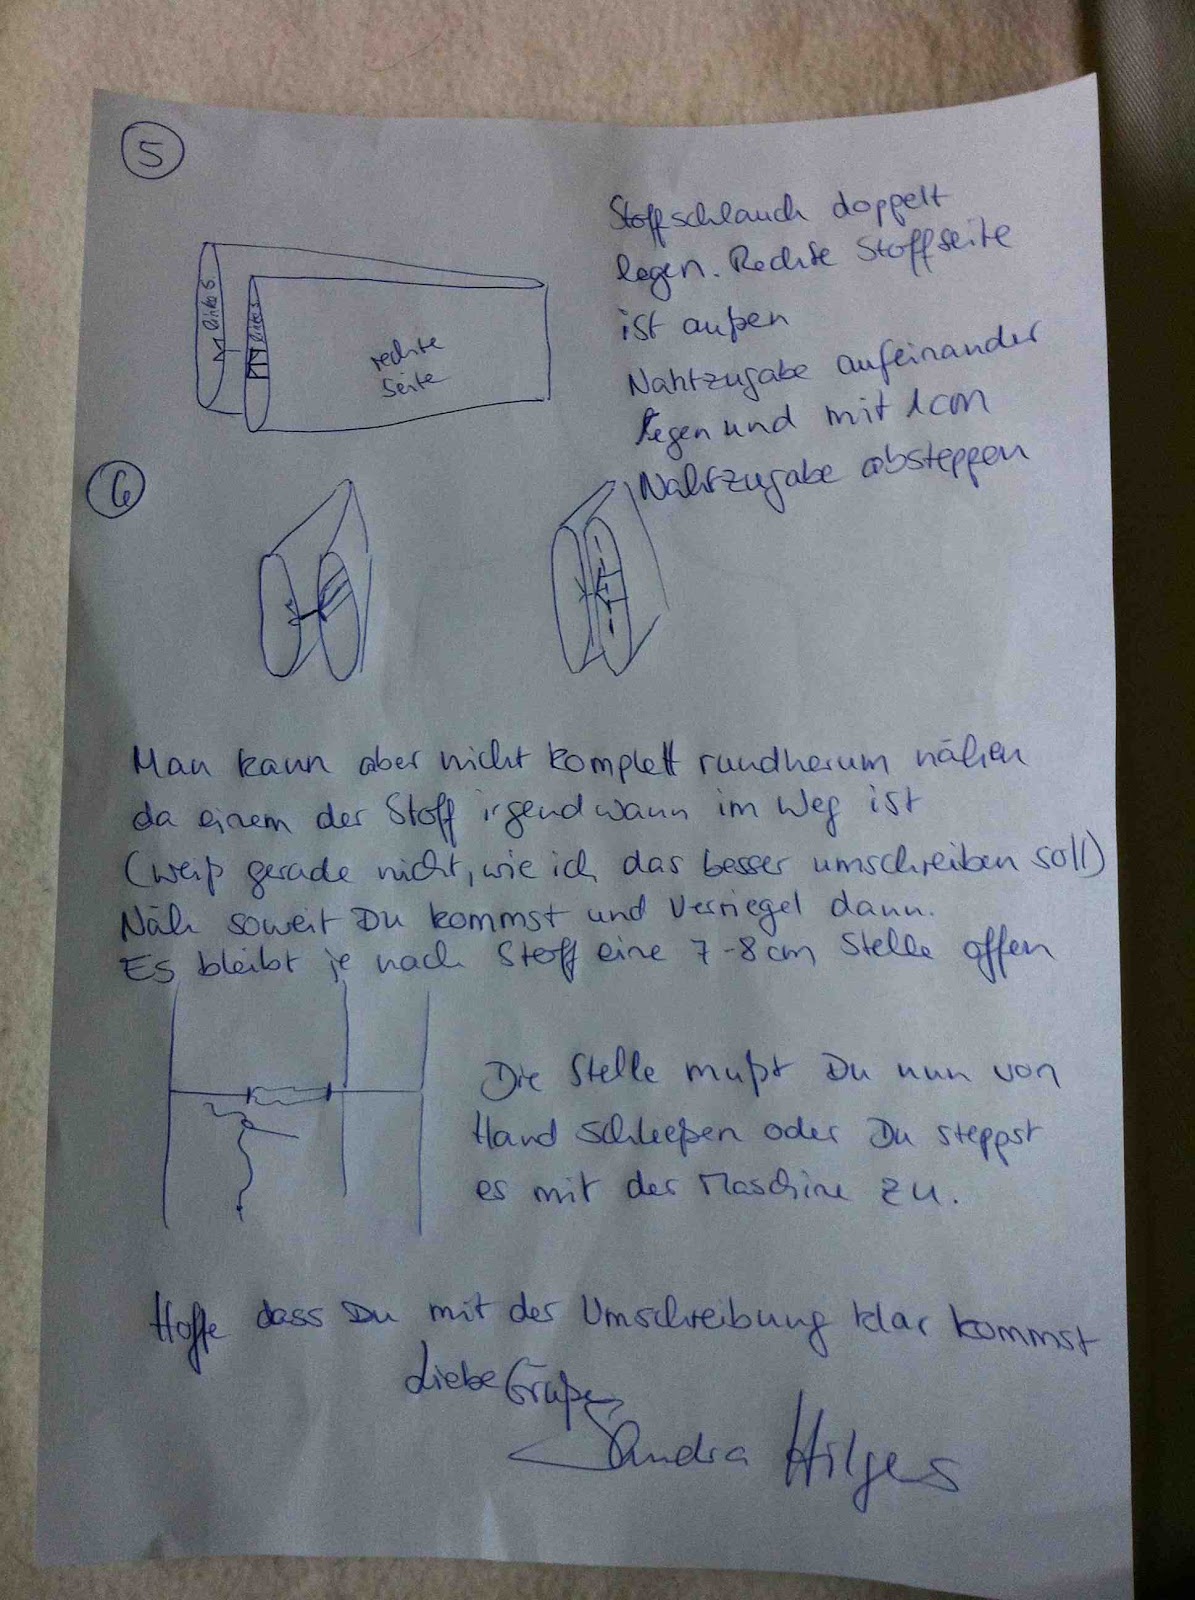 5
Stoffschlauch doppelt
legen. Rechte Stoffseite
ist außen
Nahtzugabe aufeinander
legen und mit 1cm
Nahtzugabe absteppen
linke S
linke S
rechte
Seite
6
Man kann aber nicht komplett rundherum nähen
da einem der Stoff irgendwann im Weg ist
(weiß gerade nicht, wie ich das besser umschreiben soll)
Näh soweit Du kommst und verriegel dann.
Es bleibt je nach Stoff eine 7-8cm Stelle offen
Die Stelle mußt Du nun von
Hand schließen oder Du steppst
es mit der Maschine zu.
Hoffe dass Du mit der Umschreibung klar kommst
Liebe Grüße
Sandra Hilges